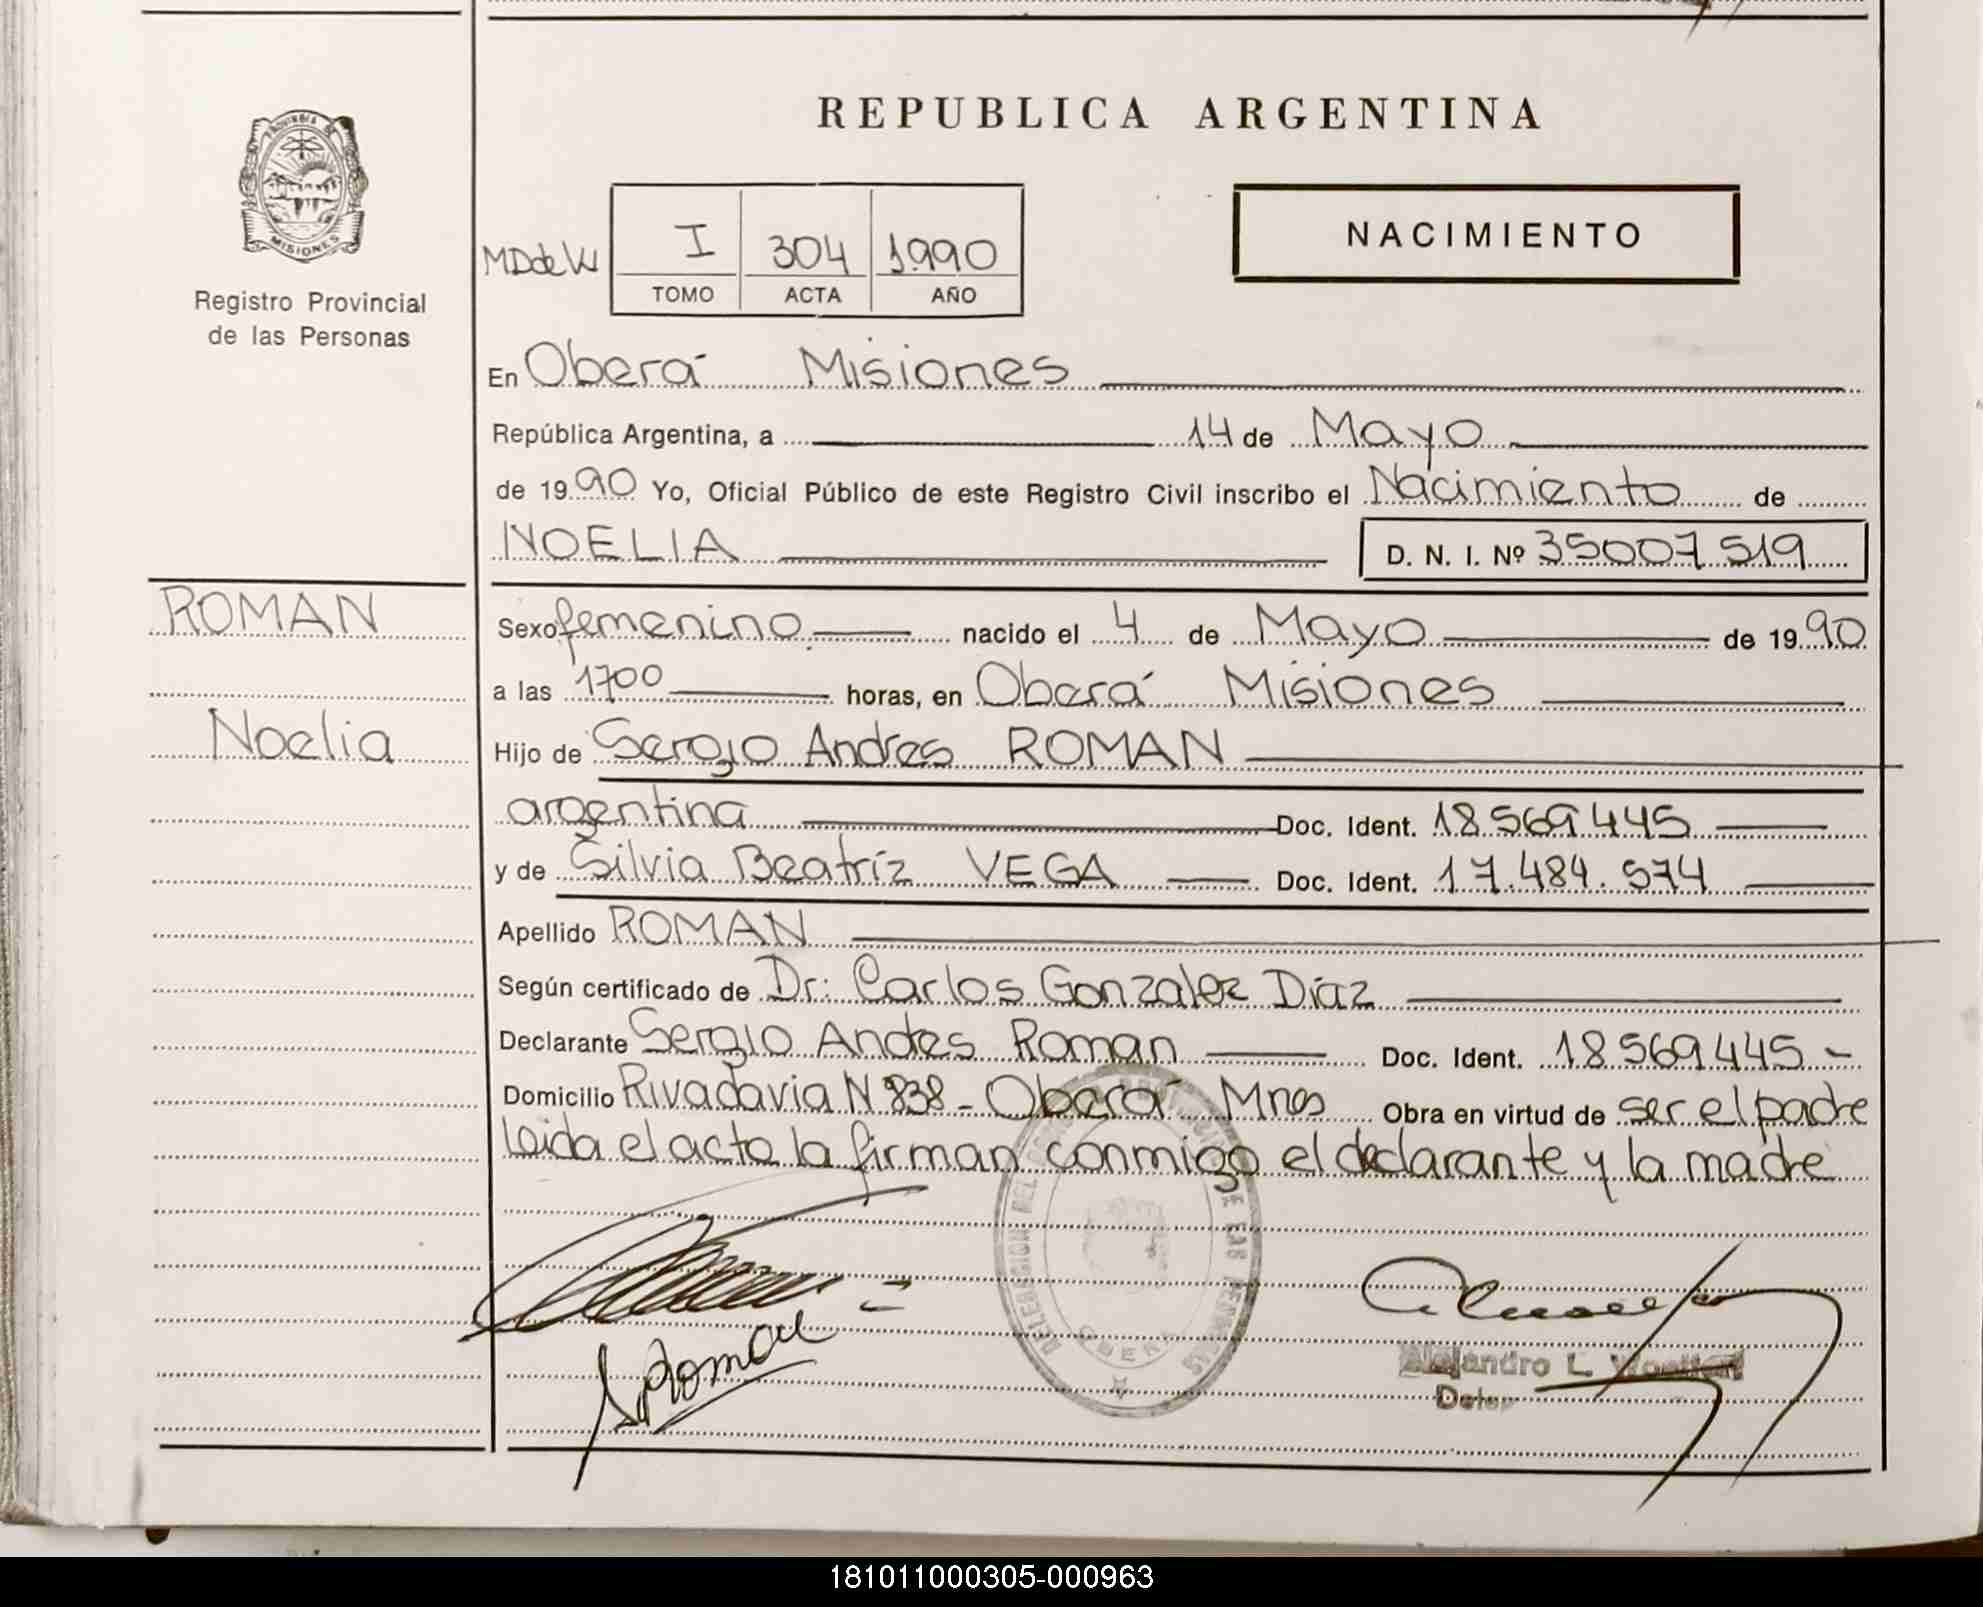 REPUBLICA ARGENTINA
PROVINCIA DE
MISIONES
Registro Provincial
de las Personas
MDdeW
I 304 1990
TOMO ACTA AÑO
NACIMIENTO
En Oberá Misiones
República Argentina, a 14 de Mayo
de 1990 Yo, Oficial Público de este Registro Civil inscribo el Nacimiento de
NOELIA D. N. I. Nº 35007519
ROMAN
Noelia
Sexo femenino nacido el 4 de Mayo de 1990
a las 1700 horas, en Oberá Misiones
Hijo de Sergio Andres ROMAN
argentina Doc. Ident. 18569445
y de Silvia Beatríz VEGA Doc. Ident. 17.484.574
Apellido ROMAN
Según certificado de Dr: Carlos Gonzalez Díaz
Declarante Sergio Andres Roman Doc. Ident. 18569445-
Domicilio Rivadavia N 838- Oberá Mnes Obra en virtud de ser el padre
Leida el acta la firman conmigo el declarante y la madre
Roman
DELEGACION DEL DE LAS PERSONAS
OBERA
Alejandro L.
181011000305-000963